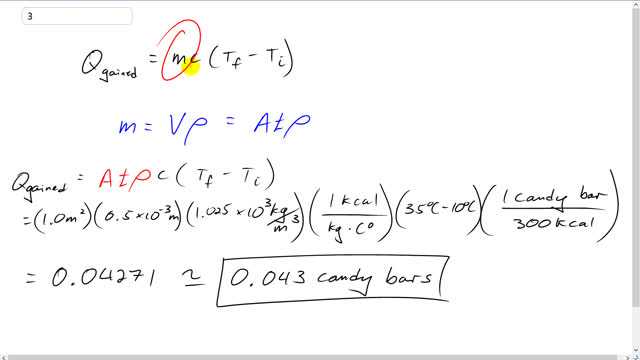 3
Q gained = mc (T_f − T_i)
m = Vρ = Atρ
Q gained = Atρ c (T_f − T_i)
= (1.0 m²) (0.5 × 10⁻³ m) (1.025 × 10³ kg/m³) (1 kcal / kg · C°) (35°C − 10°C) (1 candy bar / 300 kcal)
= 0.04271 ≃ 0.043 candy bars